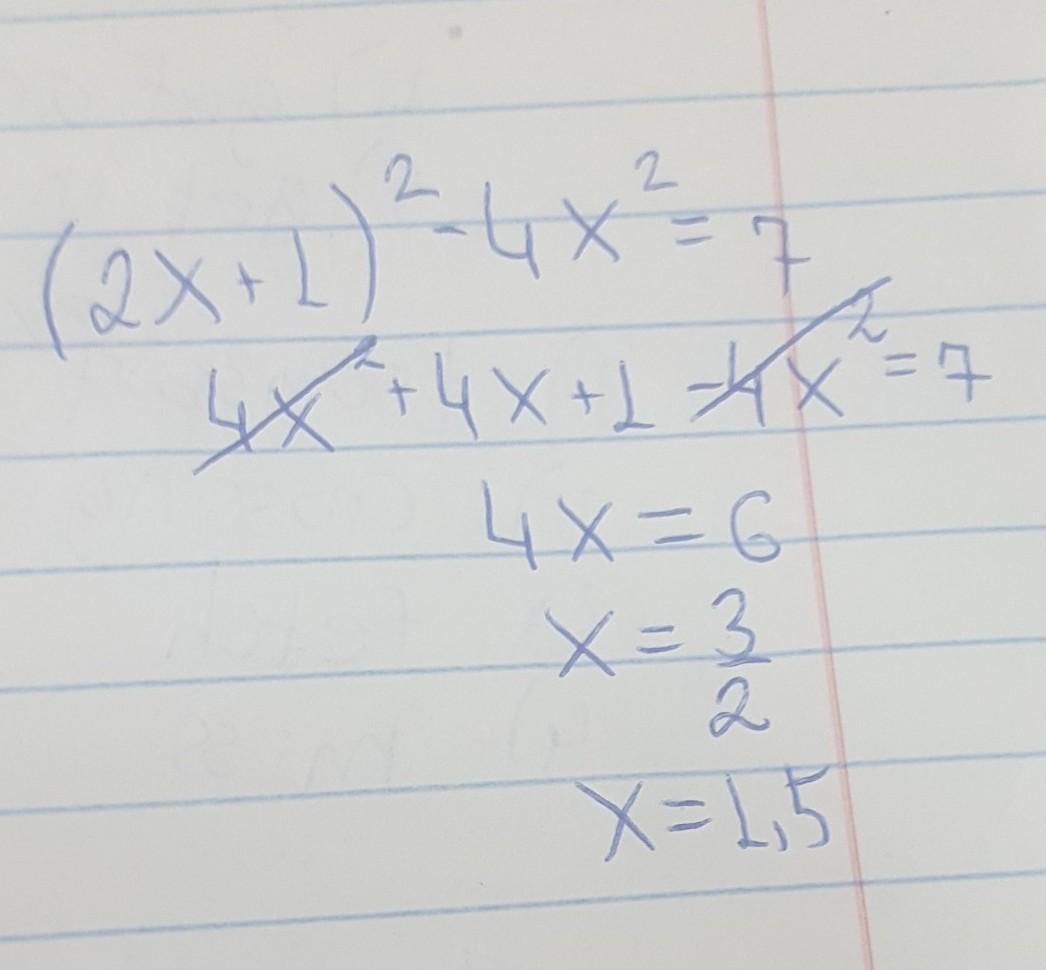 (2x+1)² - 4x² = 7
4x² + 4x + 1 - 4x² = 7
4x = 6
x = 3/2
x = 1,5